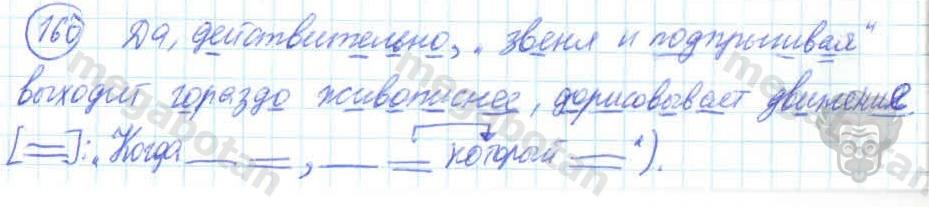 160 Да, действительно, „звеня и подпрыгивая“
выходит гораздо живописнее, дорисовывает движения.
[══]: „Когда __ ══, __ ══ который ══“).
megabotan
megabotan
megabotan
megabotan
megabotan